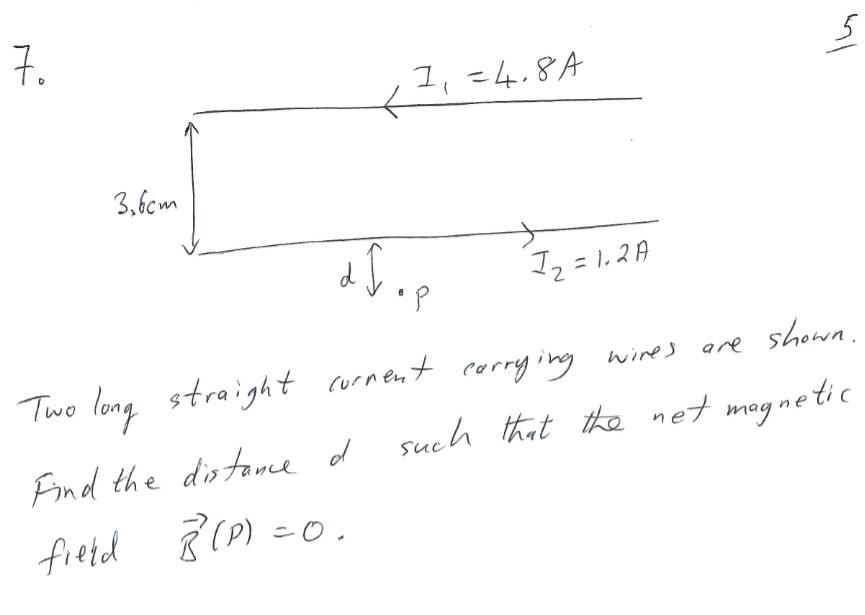 5
7.
I₁ = 4.8A
3.6cm
I₂ = 1.2A
d
.p
Two long straight current carrying wires are shown.
Find the distance d such that the net magnetic
field B⃗(P) = 0.